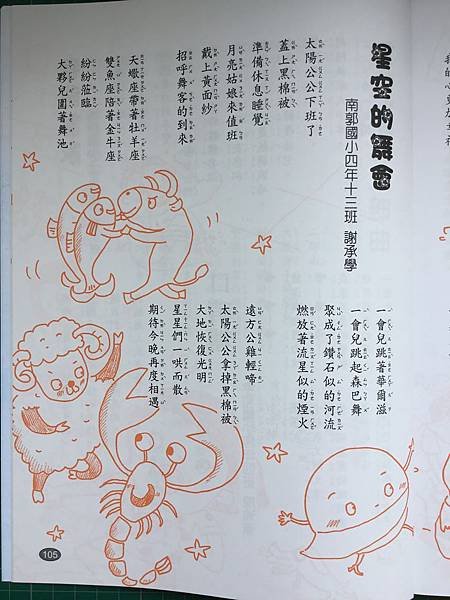 星空的舞會
南郭國小四年十三班 謝承學
太陽公公下班了
蓋上黑棉被
準備休息睡覺
月亮姑娘來值班
戴上黃面紗
招呼舞客的到來
天蠍座帶著牡羊座
雙魚座陪著金牛座
紛紛蒞臨
大夥兒圍著舞池
一會兒跳著華爾滋
一會兒跳起森巴舞
聚成了鑽石似的河流
燃放著流星似的煙火
遠方公雞輕啼
太陽公公拿掉黑棉被
大地恢復光明
星星們一哄而散
期待今晚再度相遇
105